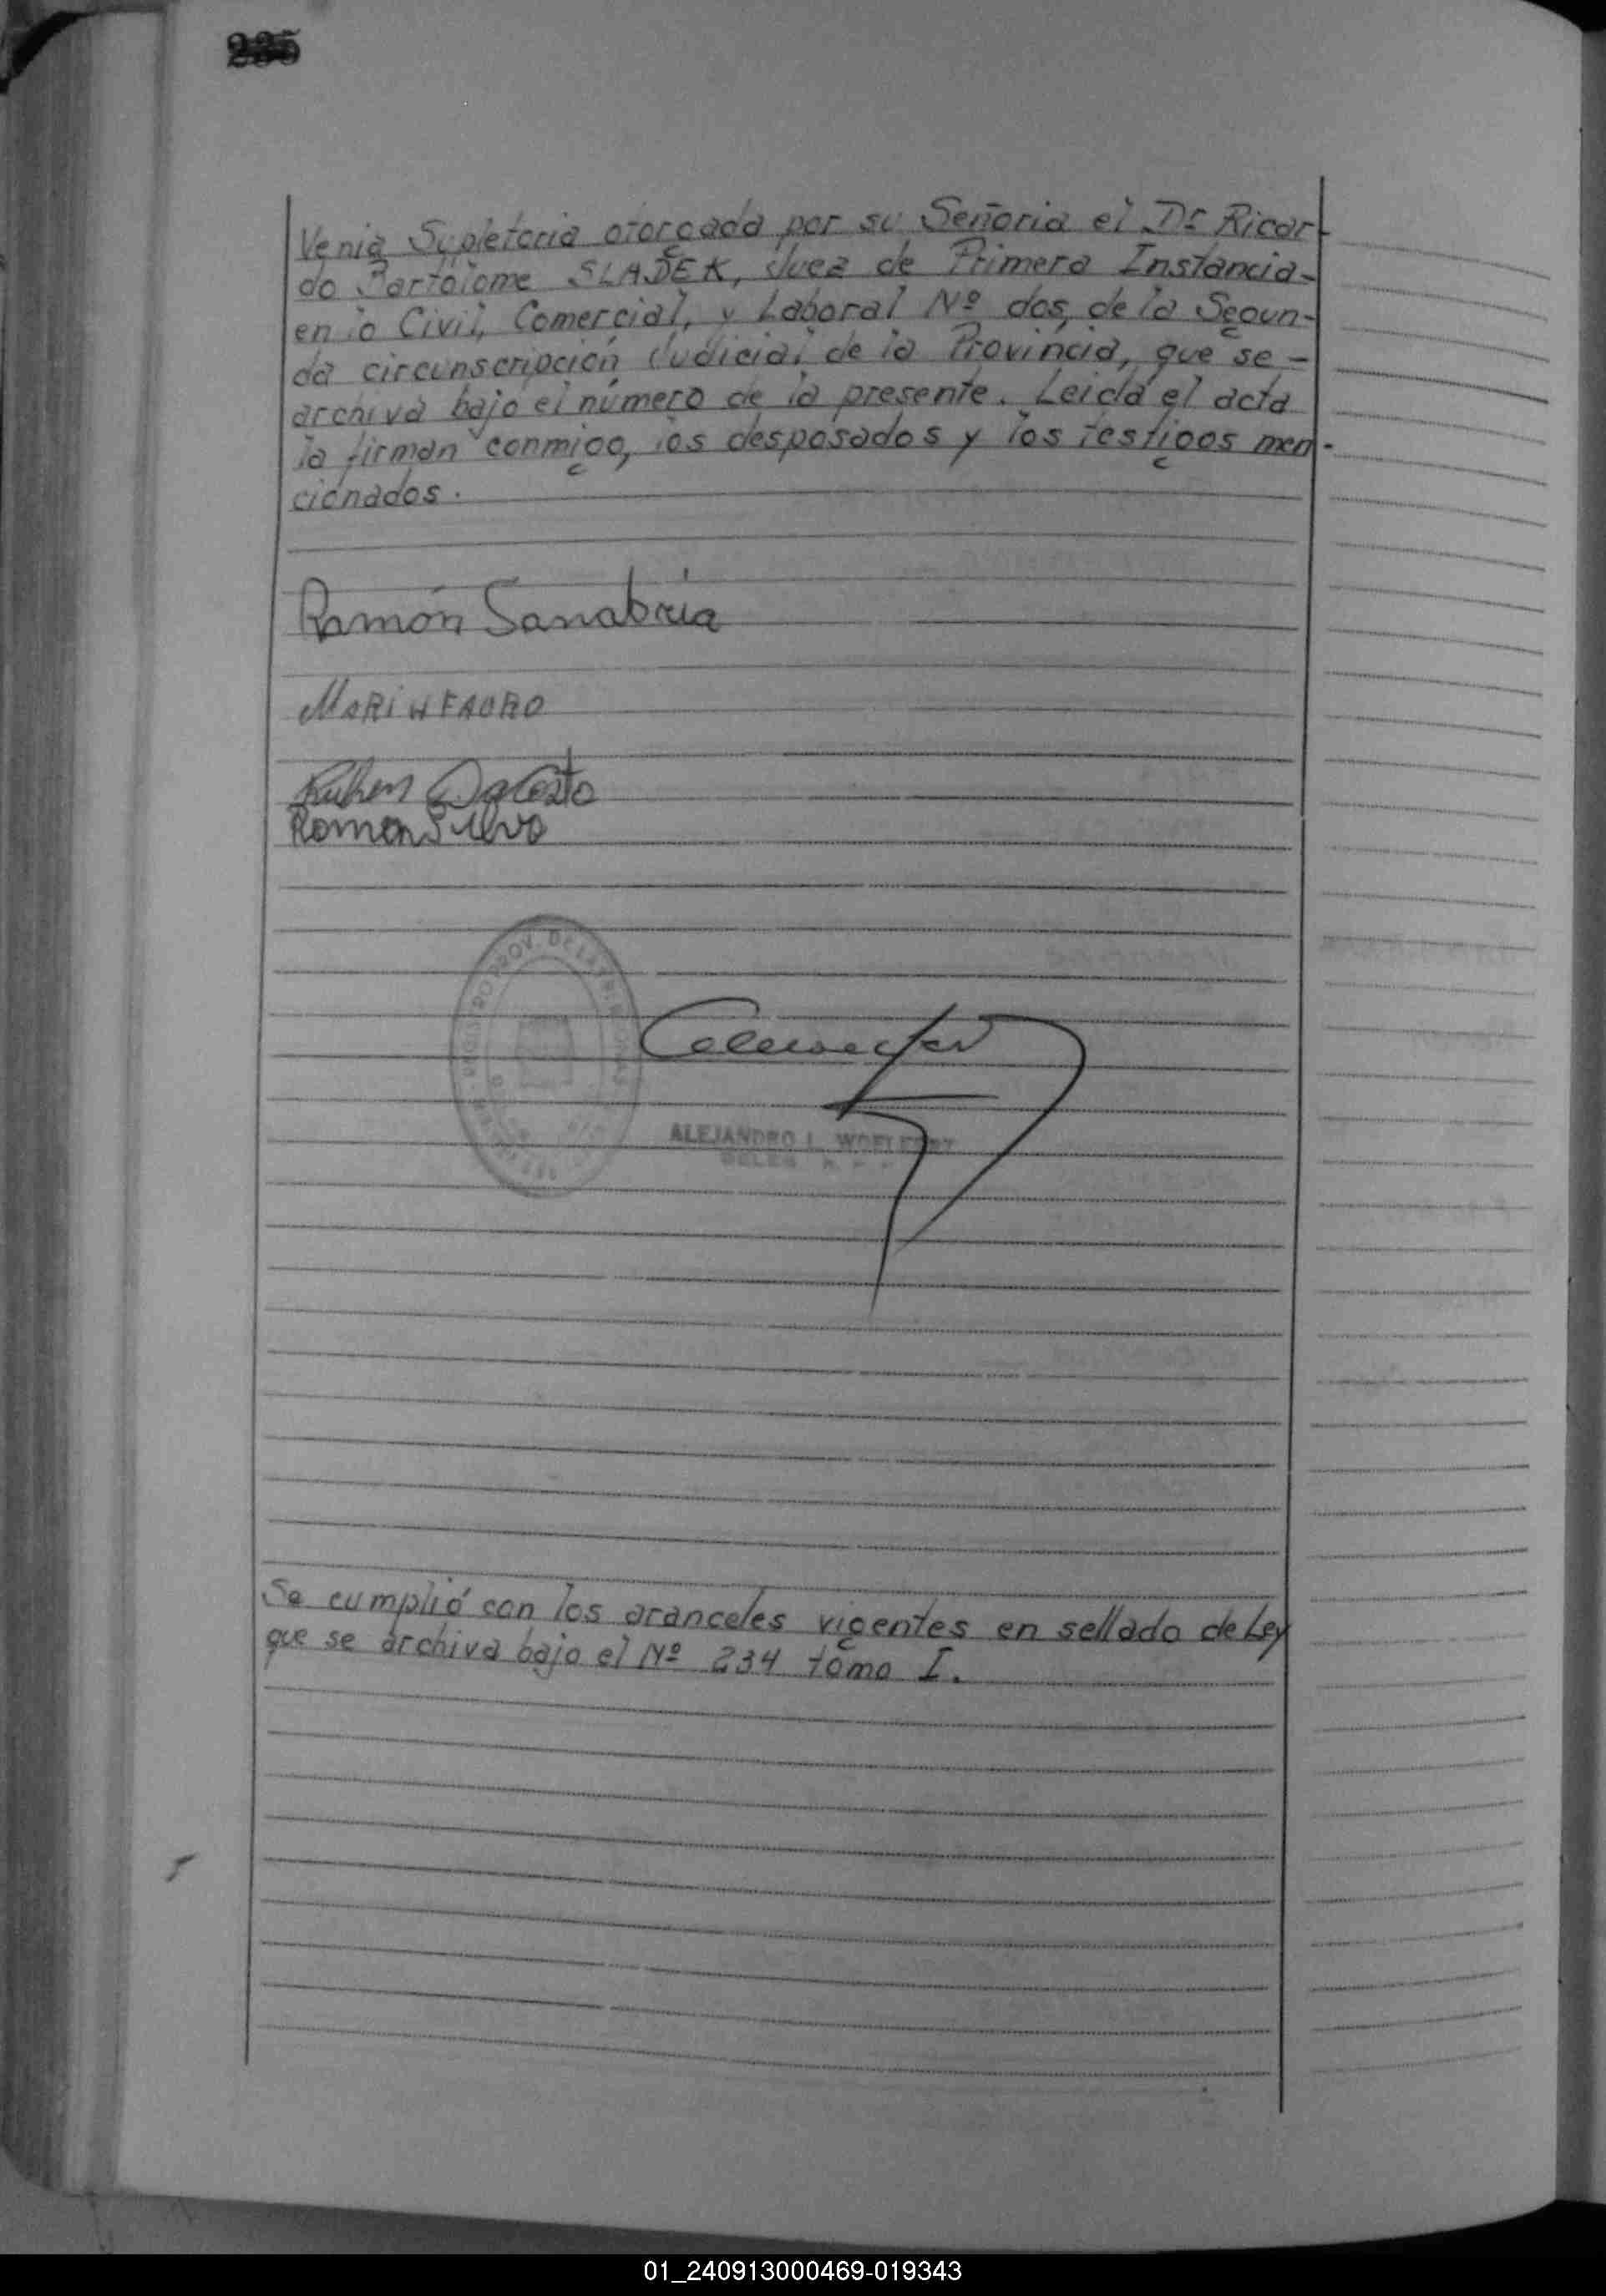 235
Venia Supletoria otorgada por su Señoria el Dr Ricar-
do Bartolome SLADEK, Juez de Primera Instancia-
en lo Civil, Comercial, y Laboral Nº dos, de la Segun-
da circunscripción Judicial de la Provincia, que se -
archiva bajo el número de la presente. Leida el acta
la firman conmigo, los desposados y los testigos men-
cionados.
Ramón Sanabria
MARIN FAORO
Ruben Dacosta
Ramon Silva
PROV. DE
ALEJANDRO L.
Se cumplió con los aranceles vigentes en sellado de Ley
que se archiva bajo el Nº 234 tomo I.
01_240913000469-019343